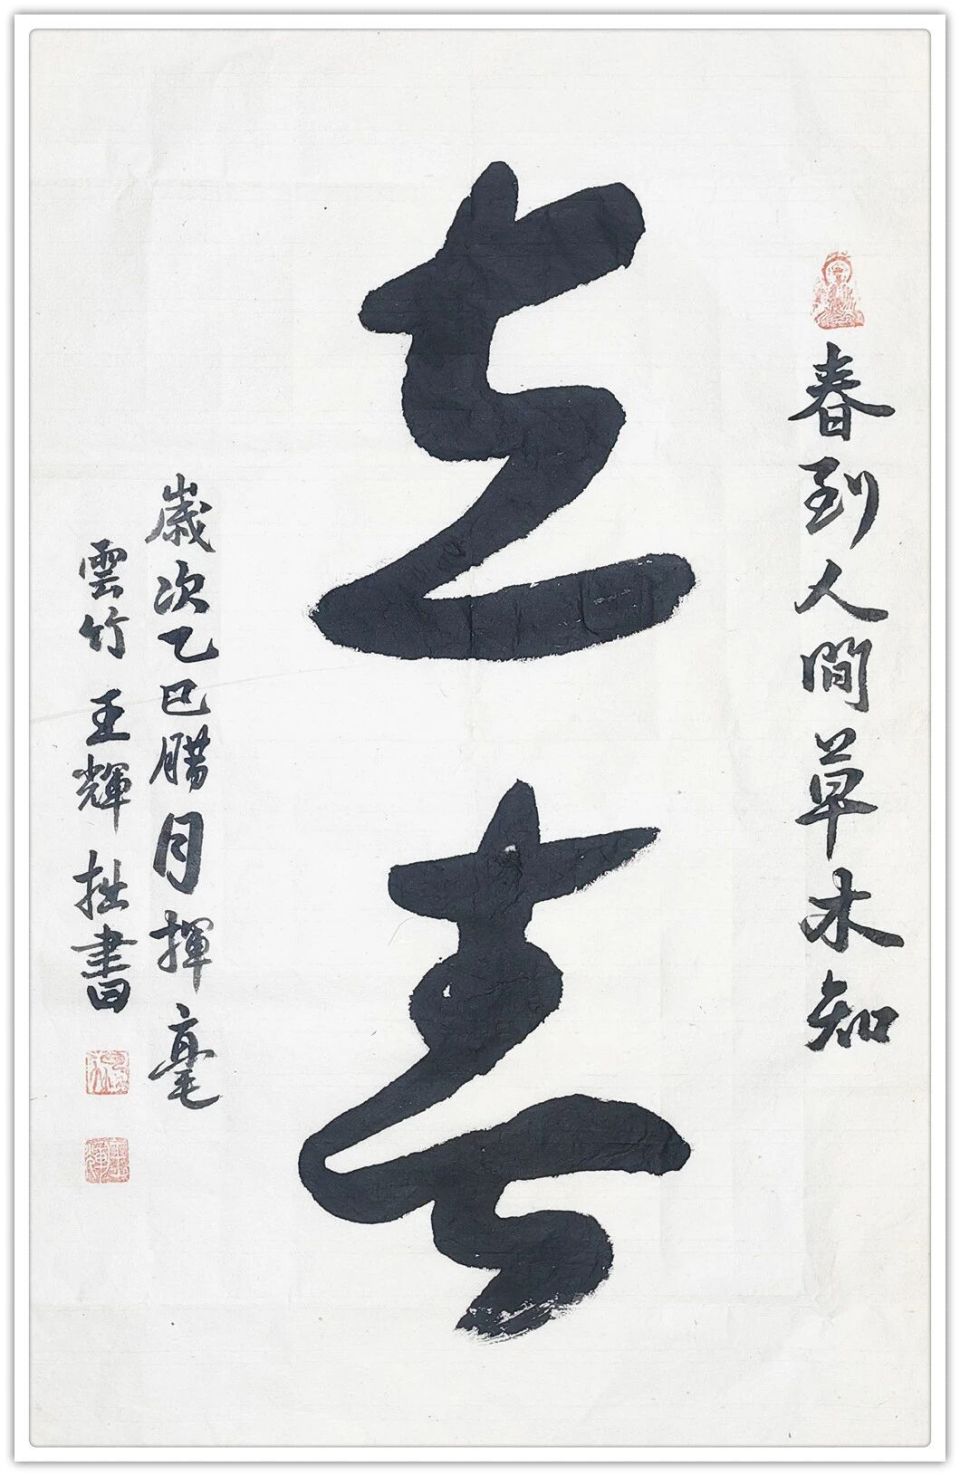 春到人間草木知
立春
歲次乙巳腊月揮毫
雲竹王輝拙書